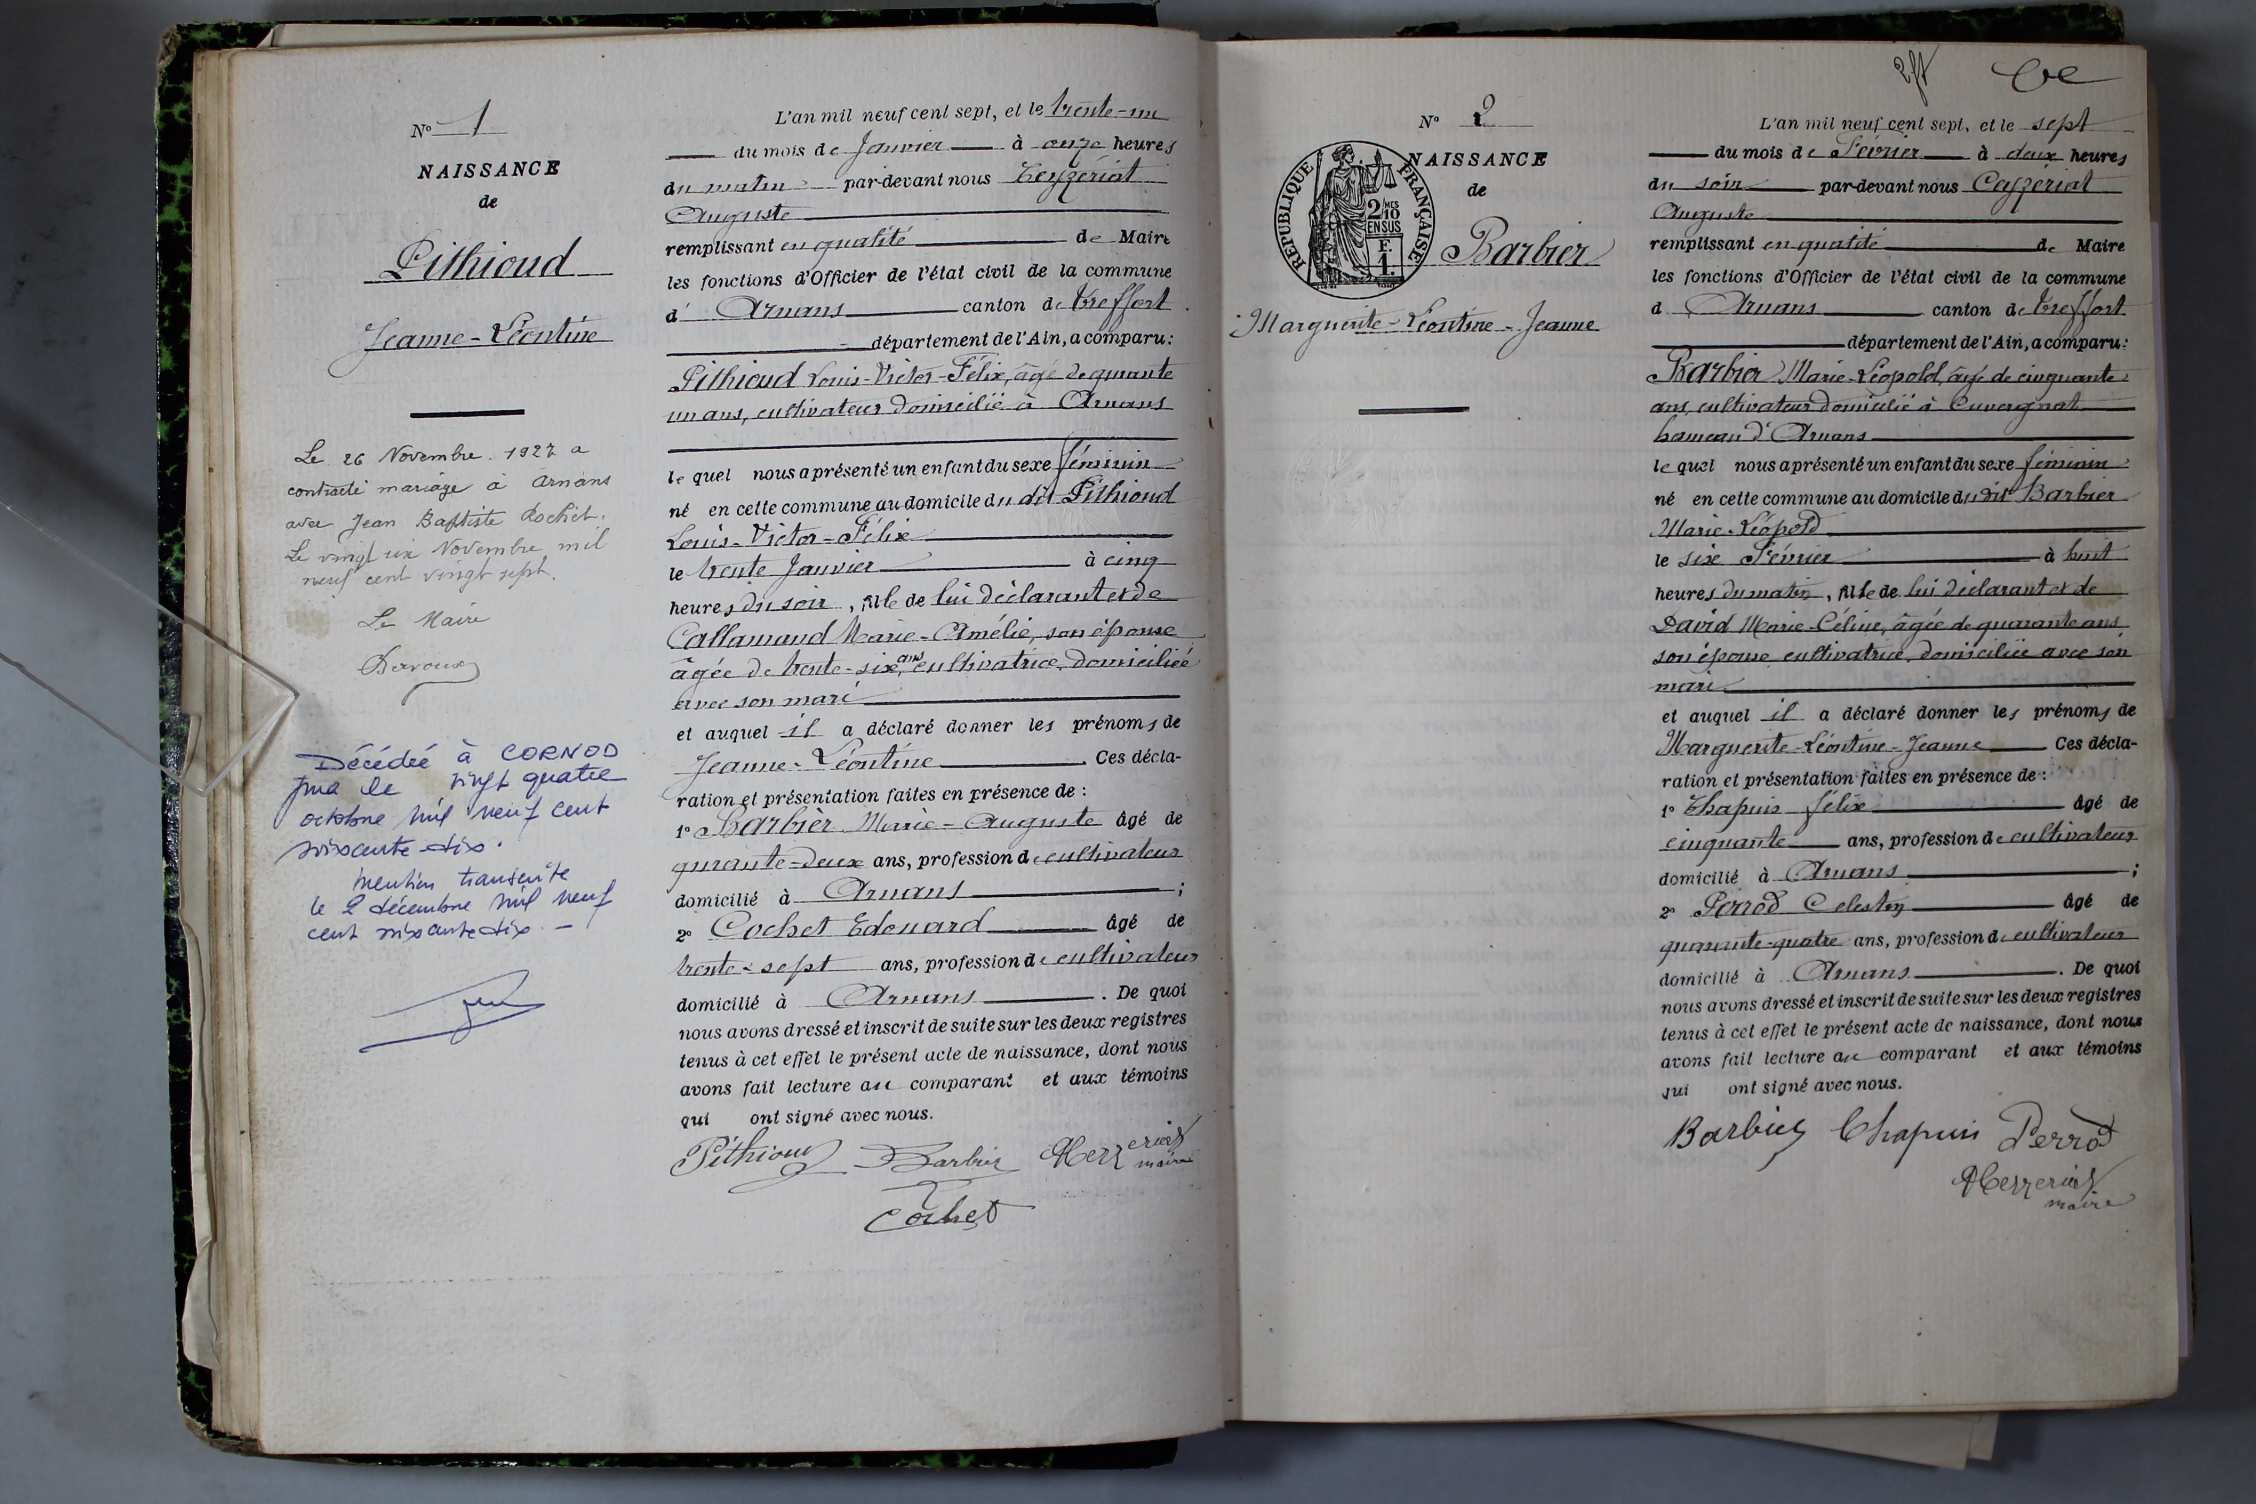 N° 1
NAISSANCE
de
Pithioud
Jeanne-Léontine
Le 26 Novembre 1927 a
contracté mariage à Arnans
avec Jean Baptiste Rochet.
Le vingt six Novembre mil
neuf cent vingt sept.
Le Maire
Dervoux
Décédée à CORNOD
Jura le vingt quatre
octobre mil neuf cent
soixante-dix.
Mention transcrite
le 2 décembre mil neuf
cent soixante dix. —
L'an mil neuf cent sept, et le trente-un
du mois de Janvier à onze heures
du matin par-devant nous Ceyzériat
Auguste
remplissant en qualité de Maire
les fonctions d'Officier de l'état civil de la commune
d' Arnans canton de Treffort
département de l'Ain, a comparu:
Pithioud Louis-Victor-Félix, âgé de quarante
un ans, cultivateur domicilié à Arnans
lequel nous a présenté un enfant du sexe féminin
né en cette commune au domicile du dit Pithioud
Louis-Victor-Félix
le trente Janvier à cinq
heures du soir, fille de lui déclarant et de
Callamand Marie-Amélie, son épouse
âgée de trente-six ans, cultivatrice domiciliée
avec son mari
et auquel il a déclaré donner les prénoms de
Jeanne-Léontine Ces décla-
ration et présentation faites en présence de :
1° Barbier Marie-Auguste âgé de
quarante-deux ans, profession de cultivateur
domicilié à Arnans ;
2° Cochet Edouard âgé de
trente-sept ans, profession de cultivateur
domicilié à Arnans . De quoi
nous avons dressé et inscrit de suite sur les deux registres
tenus à cet effet le présent acte de naissance, dont nous
avons fait lecture au comparant et aux témoins
qui ont signé avec nous.
Pithioud Barbier ACeyzeriat
maire
Cochet
N° 2
NAISSANCE
de
RÉPUBLIQUE FRANÇAISE
2/10 MES
EN SUS
F.
1.
Barbier
Marguerite-Léontine-Jeanne
L'an mil neuf cent sept, et le sept
du mois de Février à deux heures
du soir par-devant nous Ceyzériat
Auguste
remplissant en qualité de Maire
les fonctions d'Officier de l'état civil de la commune
d Arnans canton de Treffort
département de l'Ain, a comparu:
Barbier Marie-Léopold, âgé de cinquante
ans, cultivateur domicilié à Cuvergnat
hameau d'Arnans
lequel nous a présenté un enfant du sexe féminin
né en cette commune au domicile du dit Barbier
Marie-Léopold
le six Février à huit
heures du matin, fille de lui déclarant et de
David Marie-Céline, âgée de quarante ans
son épouse cultivatrice domiciliée avec son
mari
et auquel il a déclaré donner les prénoms de
Marguerite-Léontine-Jeanne Ces décla-
ration et présentation faites en présence de :
1° Chapuis Félix âgé de
cinquante ans, profession de cultivateur
domicilié à Arnans ;
2° Perrod Celestin âgé de
quarante-quatre ans, profession de cultivateur
domicilié à Arnans . De quoi
nous avons dressé et inscrit de suite sur les deux registres
tenus à cet effet le présent acte de naissance, dont nous
avons fait lecture au comparant et aux témoins
qui ont signé avec nous.
Barbier Chapuis Perrod
ACeyzeriat
maire